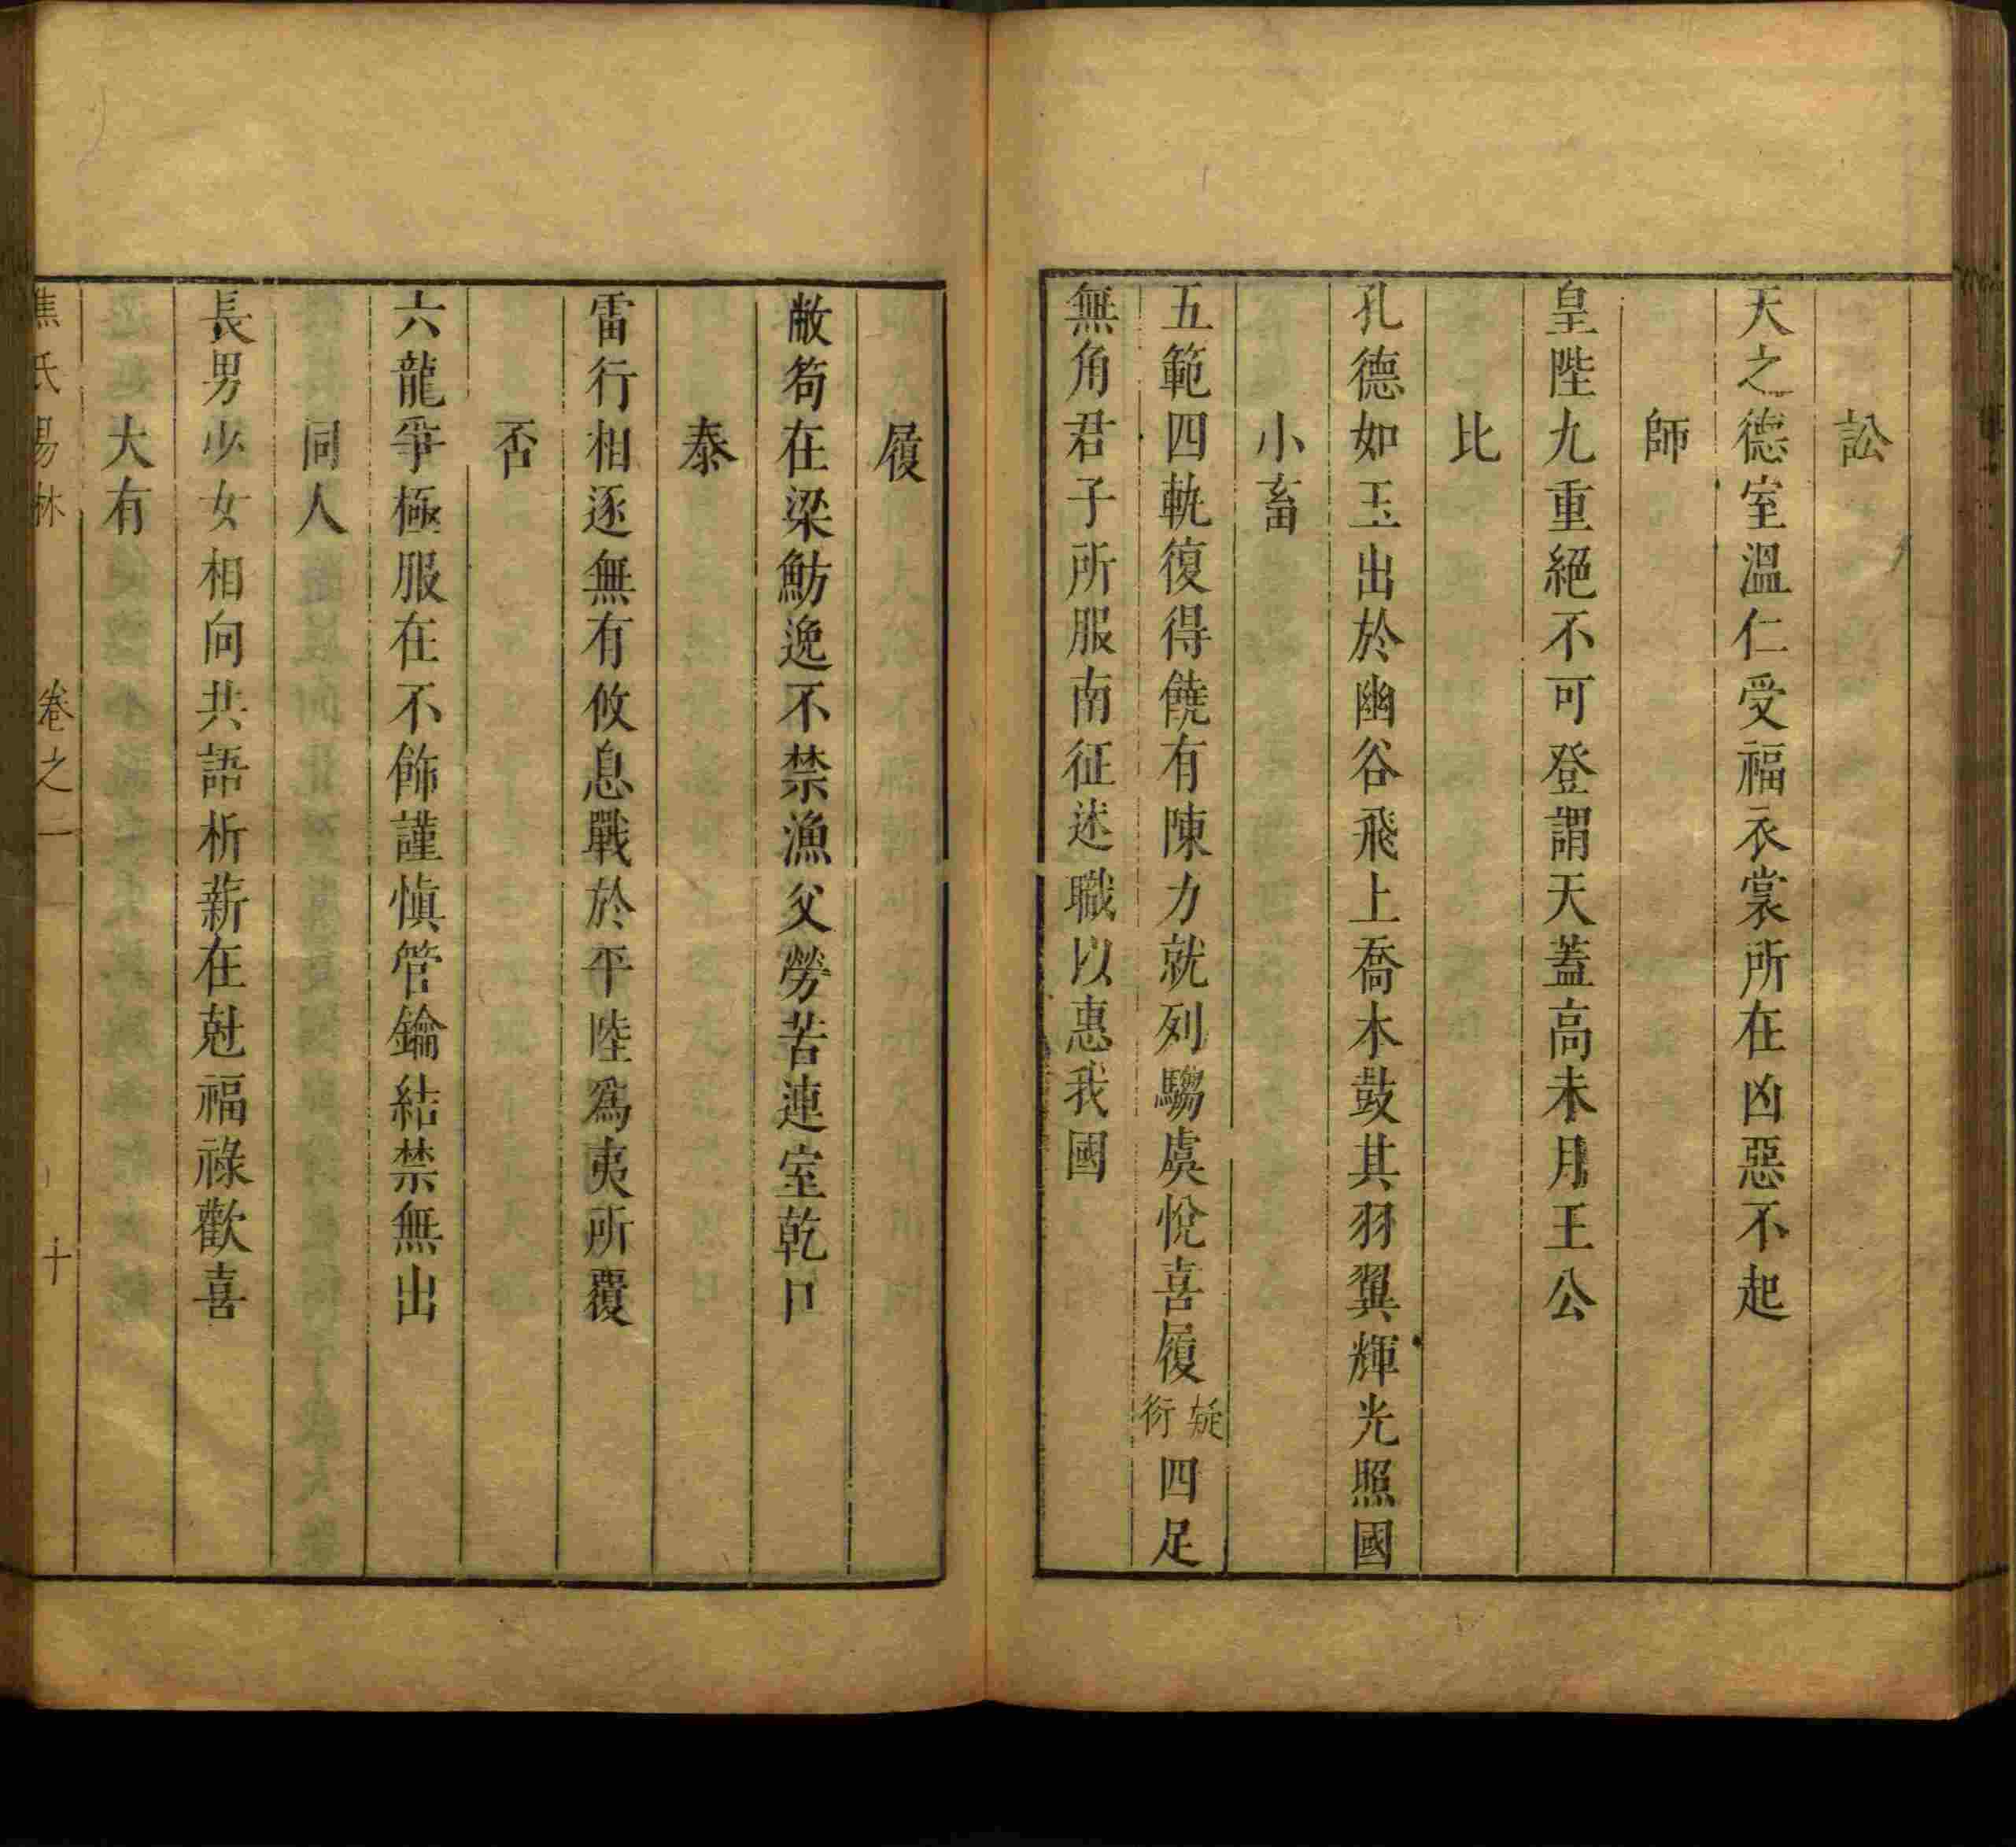 訟
天之德室溫仁受福衣裳所在凶惡不起
師
皇陛九重絕不可登謂天蓋高未月王公
比
孔德如玉出於幽谷飛上喬木鼓其羽翼輝光照國
小畜
五範四軌復得饒有陳力就列騶虞悅喜履疑衍四足
無角君子所服南征述職以惠我國
履
敝笱在梁魴逸不禁漁父勞苦連室乾口
泰
雷行相逐無有攸息戰於平陸爲夷所覆
否
六龍爭極服在不飾謹慎管鑰結禁無出
同人
長男少女相向共語析薪在尅福祿歡喜
大有
焦氏易林 卷之一 十